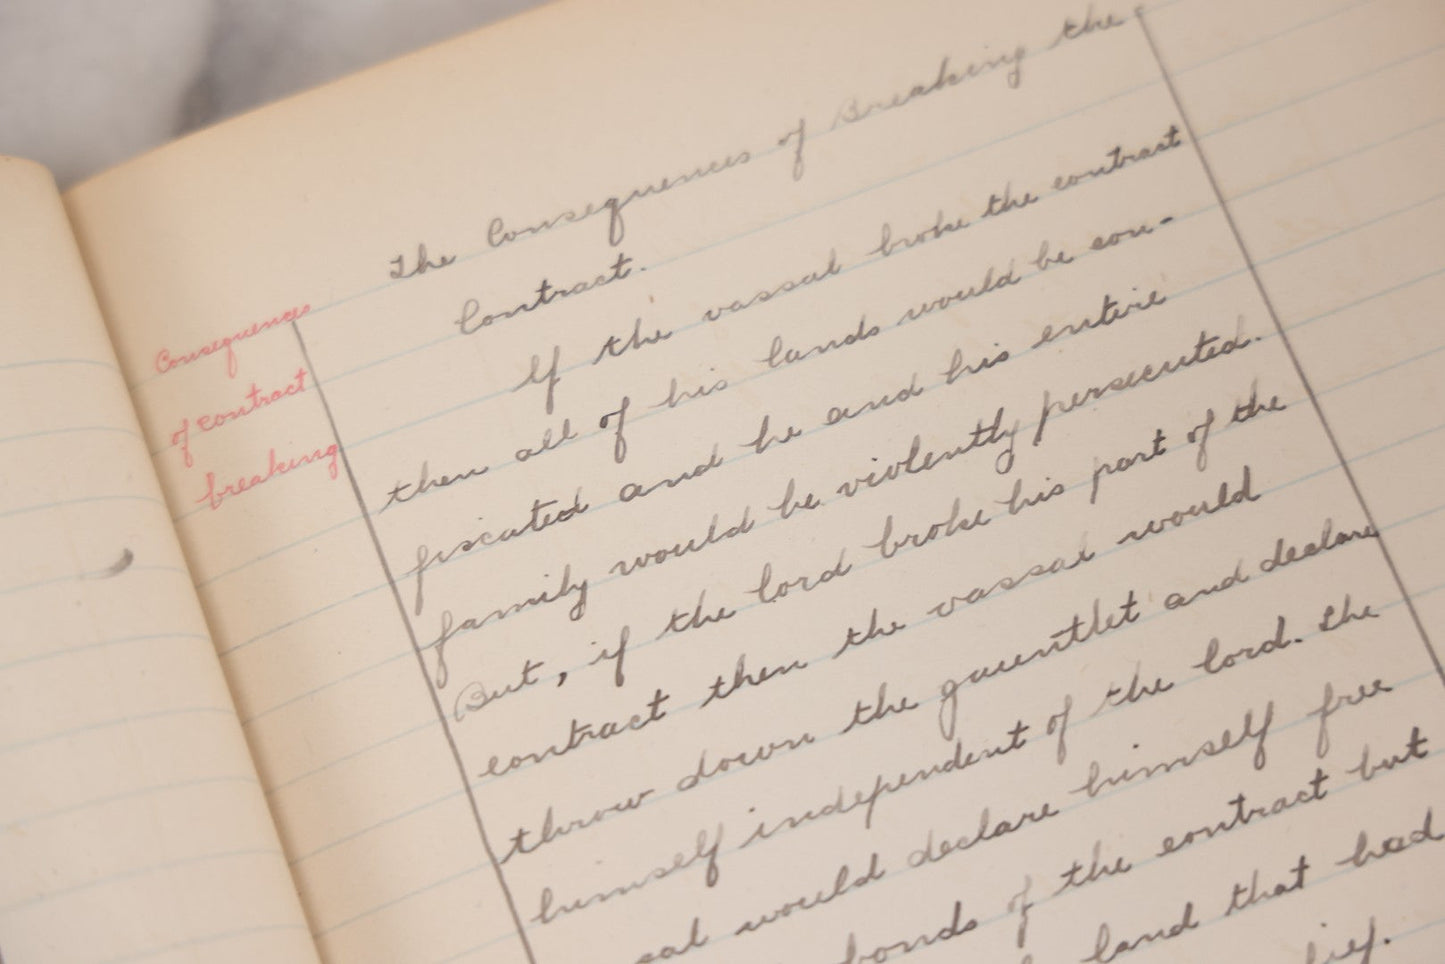 The Consequences of Breaking the
Contract.
Consequences
of contract
breaking
If the vassal broke the contract
then all of his lands would be con-
fiscated and he and his entire
family would be violently persecuted.
But, if the lord broke his part of the
contract then the vassal would
throw down the gauntlet and declare
himself independent of the lord. The
sal would declare himself free
bonds of the contract but
land that had